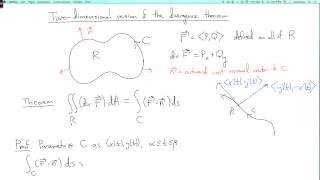 Two-dimensional version of the divergence theorem
F = <P,Q> defined on all of R
div F = Pₓ + Q_y
n = outward unit normal vector to C
R
C
<x'(t), y'(t)>
<y'(t), -x'(t)>
R
C
Theorem ∬_R (div F) dA = ∫_C (F·n) ds
Proof Parametrize C as (x(t), y(t)), α ≤ t ≤ β.
∫_C (F·n) ds =